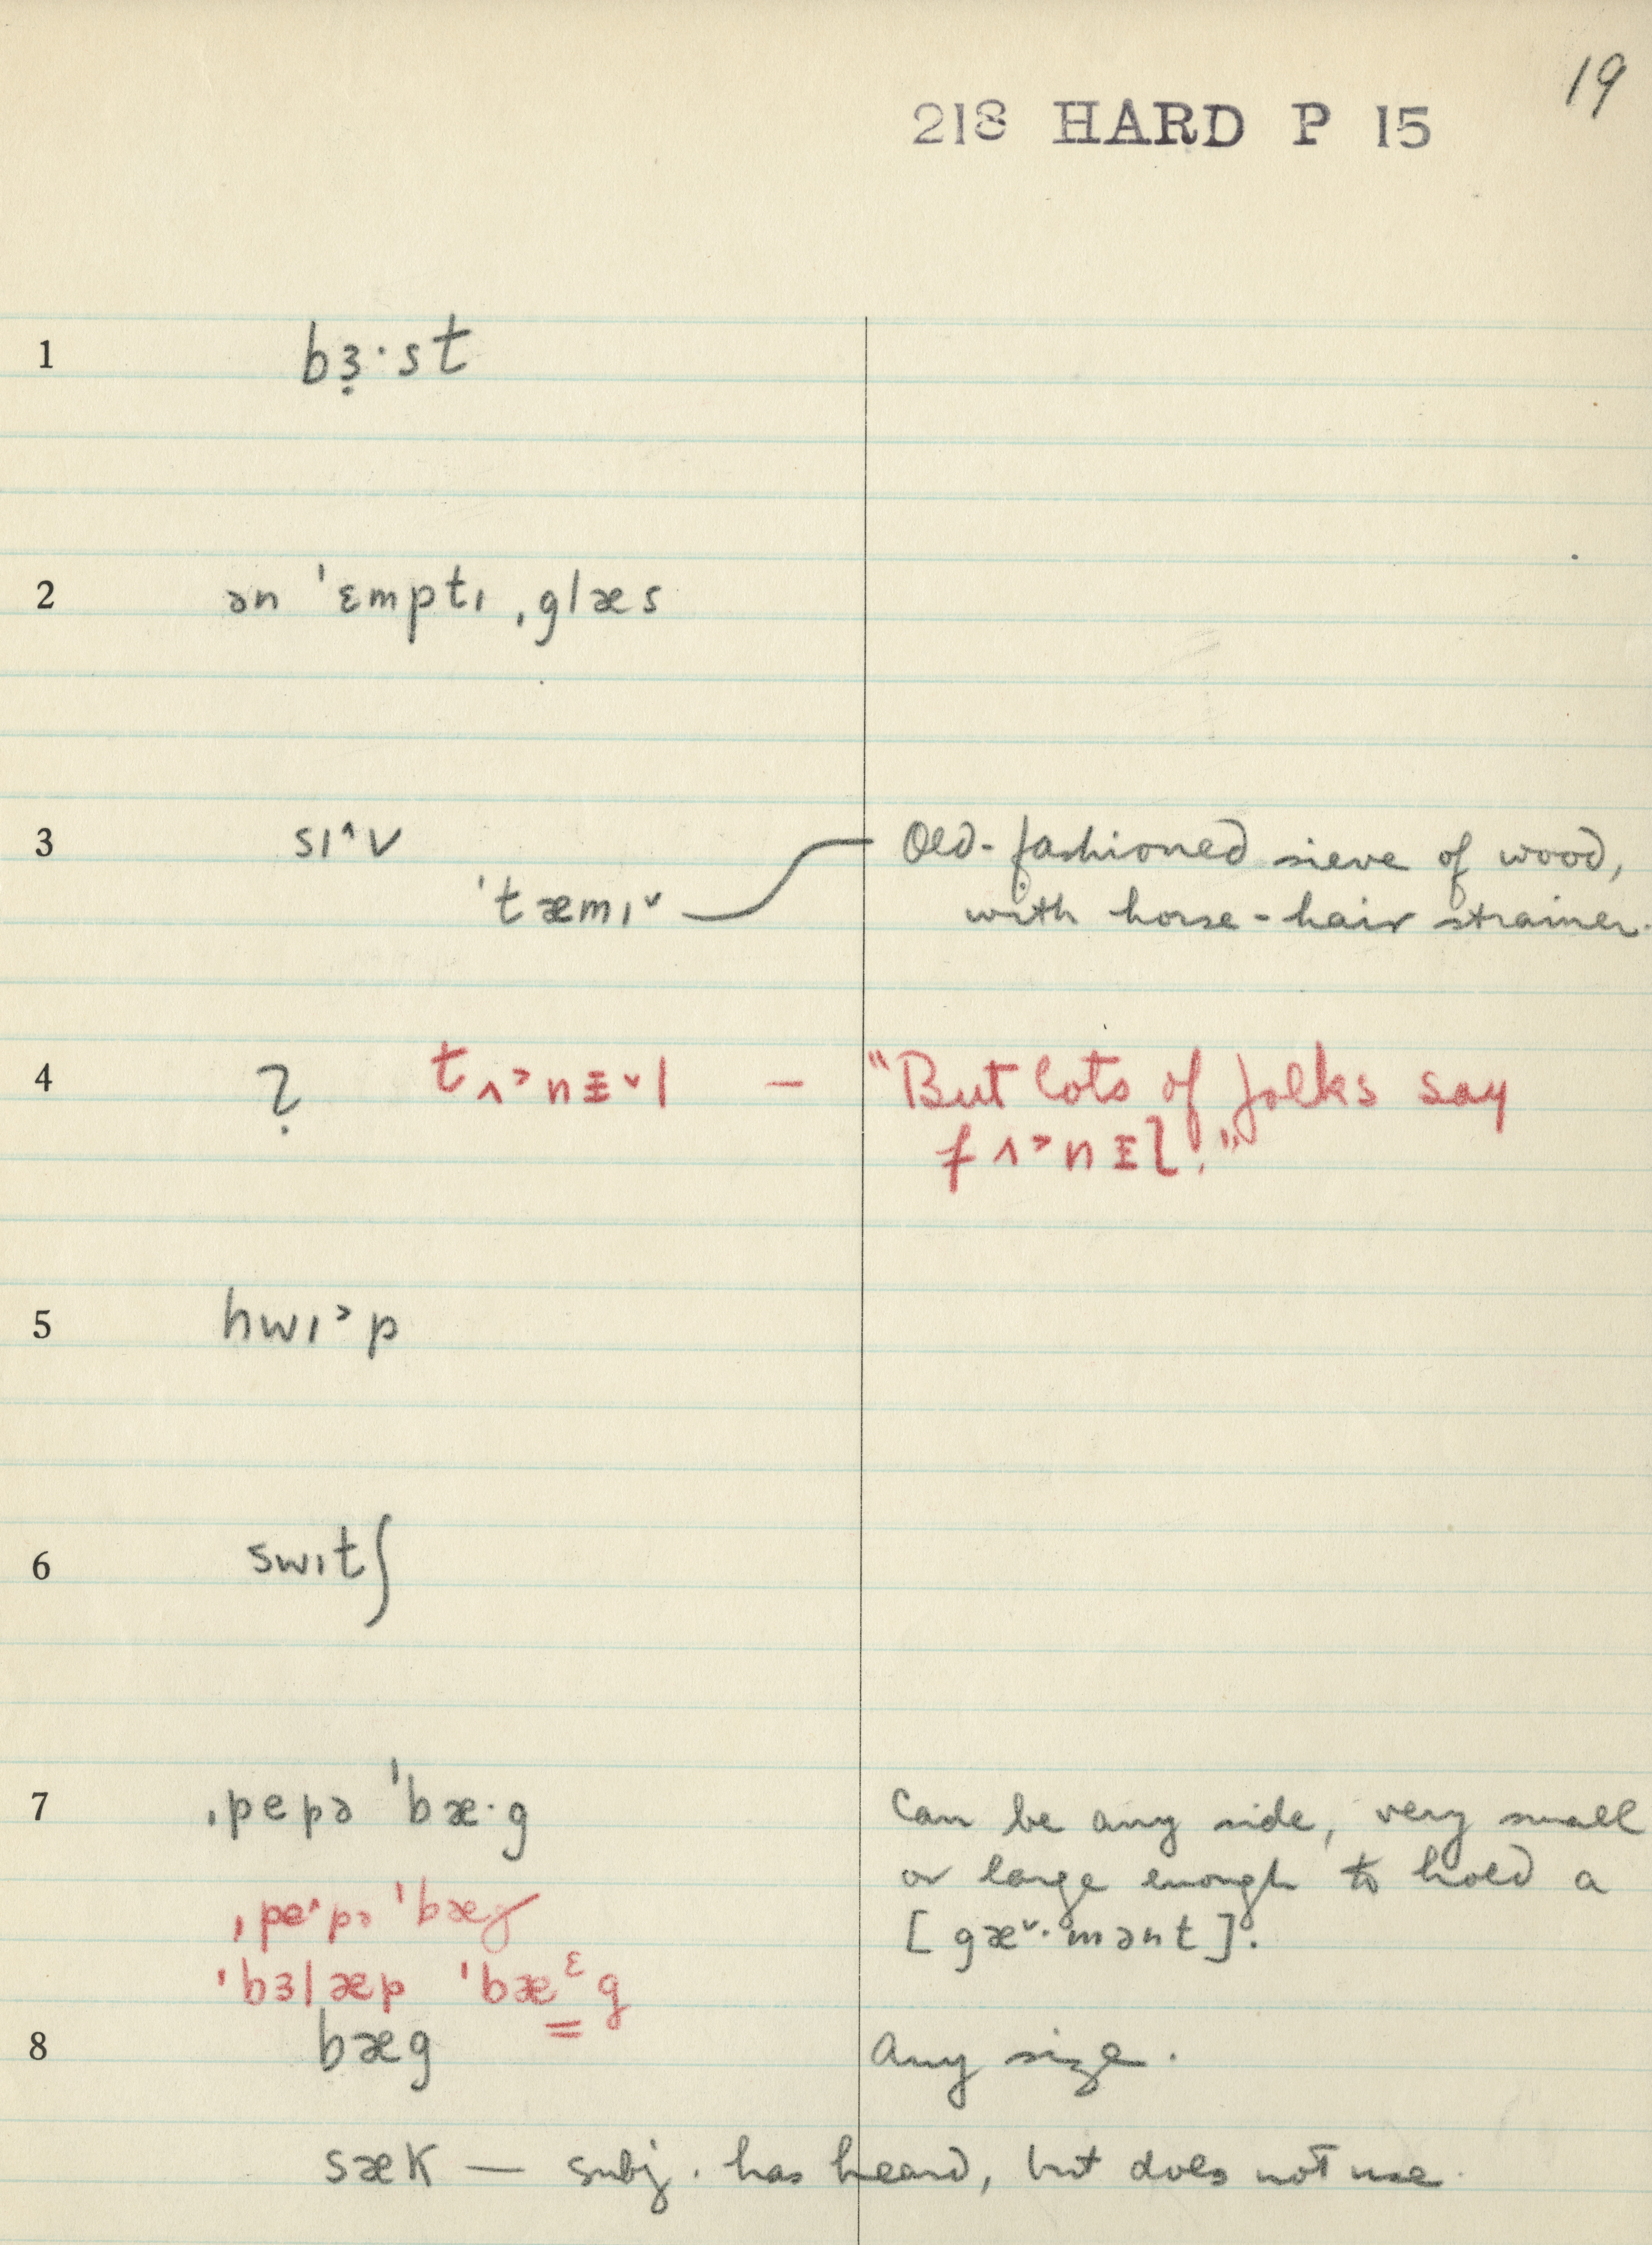 19
218 HARD P 15
1 bɜ̣·st
2 ən ˈɛmptɪ ˌglæs
3 sɪ^v Old-fashioned sieve of wood,
ˈtæmɪ˅ with horse-hair strainer.
4 ? tʌ˃nᵻ˅l — "But lots of folks say
fʌ˃nᵻl."
5 hwɪ˃p
6 swɪtʃ
7 ˌpepə ˈbæ·g Can be any side, very small
or large enough to hold a
ˌpe^pə ˈbæg [gæ˅·mənt].
ˈbɜlæp ˈbæᵋg
8 bæg Any size.
sæk — subj. has heard, but does not use.